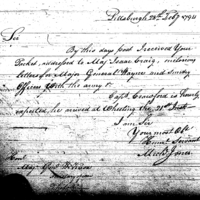 Pittsburgh 28th Feby 1794
Sir
By this days post I received Your
Packet addressed to Maj. Isaac Craig, enclosing
letters for Major General Wayne and Sundry
Officers with the army.
Capt. Crawford is hourly
expected, he arrived at Wheeling the 21st
I am Sir
Your most Obt.
Humb. Servant